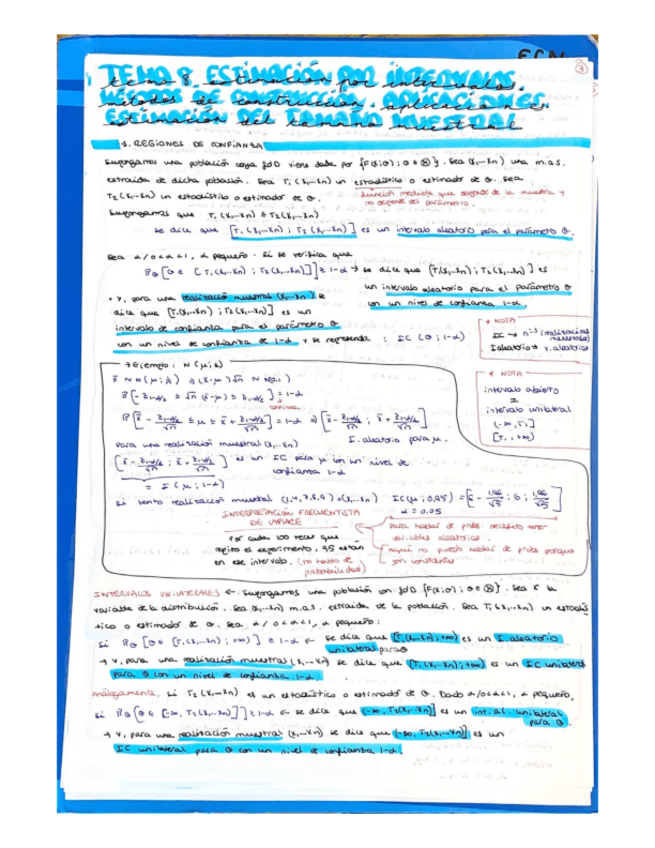 TEMA 8. Estimación por intervalos.
Métodos de construcción. Aplicaciones.
Estimación del tamaño muestral
1. REGIONES DE CONFIANZA
Supongamos una población cuya fdD viene dada por {F(x;θ) ; θ ∈ Θ}. Sea (X1,...Xn) una m.a.s.
extraída de dicha población. Sea T1(X1,...Xn) un estadístico o estimador de θ. Sea
T2(X1,...Xn) un estadístico o estimador de θ.
función medible que depende de la muestra y
no depende del parámetro.
Supongamos que T1(X1,...Xn) ≤ T2(X1,...Xn)
se dice que [T1(X1,...Xn) ; T2(X1,...Xn)] es un intervalo aleatorio para el parámetro θ.
Sea α / 0<α<1, α pequeño. Si se verifica que
Pθ[θ ∈ [T1(X1,...Xn) ; T2(X1,...Xn)]] ≥ 1-α → se dice que [T1(X1,...Xn) ; T2(X1,...Xn)] es
un intervalo aleatorio para el parámetro θ
con un nivel de confianza 1-α
• Y, para una realización muestral (X1,...Xn) se
dice que [T1(X1,...Xn) ; T2(X1,...Xn)] es un
intervalo de confianza para el parámetro θ
con un nivel de confianza de 1-α y se representa : IC (θ ; 1-α)
* NOTA
IC → nos (realizaciones
muestrales)
I.aleatorio → v. aleatorias
* NOTA
intervalo abierto
=
intervalo unilateral
(-∞, T1]
[T1, +∞)
→ Ejemplo: N(μ;1)
P[ X̄ - Z1-α/2/√n ≤ μ ≤ X̄ + Z1-α/2/√n ] = 1-α ⇒ [ X̄ - Z1-α/2/√n ; X̄ + Z1-α/2/√n ]
Para una realización muestral (X1,...Xn)
I. aleatorio para μ.
[ x̄ - Z1-α/2/√n ; x̄ + Z1-α/2/√n ] es un IC para μ con un nivel de
confianza 1-α
= I(μ ; 1-α)
Si tengo realización muestral
α = 0.05
INTERPRETACIÓN FRECUENTISTA
DE LAPLACE
Por cada 100 veces que
repito el experimento, 95 están
en ese intervalo. (no hablo de
probabilidades)
Para hablar de probs. necesito tener
variables aleatorias.
Aquí no puedo hablar de probs porque
son constantes
INTERVALOS UNILATERALES ← Supongamos una población con fdD {F(x;θ) ; θ ∈ Θ}. Sea X la
variable de la distribución. Sea (X1,...Xn) m.a.s. extraída de la población. Sea T1(X1,...Xn) un estadís
tico o estimador de θ. Sea α / 0<α<1, α pequeño:
Si Pθ[θ ∈ [T1(X1,...Xn) ; +∞)] ≥ 1-α ← se dice que [T1(X1,...Xn) ; +∞) es un I. aleatorio
unilateral para θ
→ Y, para una realización muestral (X1,...Xn) se dice que [T1(X1,...Xn) ; +∞) es un IC unilateral
para θ con un nivel de confianza 1-α.
Análogamente, si T2(X1,...Xn) es un estadístico o estimador de θ. Dado α / 0<α<1, α pequeño,
si Pθ[θ ∈ (-∞, T2(X1,...Xn)]] ≥ 1-α ← se dice que (-∞, T2(X1,...Xn)] es un int. al. unilateral
para θ.
→ Y, para una realización muestral (X1,...Xn) se dice que (-∞, T2(X1,...Xn)] es un
IC unilateral para θ con un nivel de confianza 1-α.